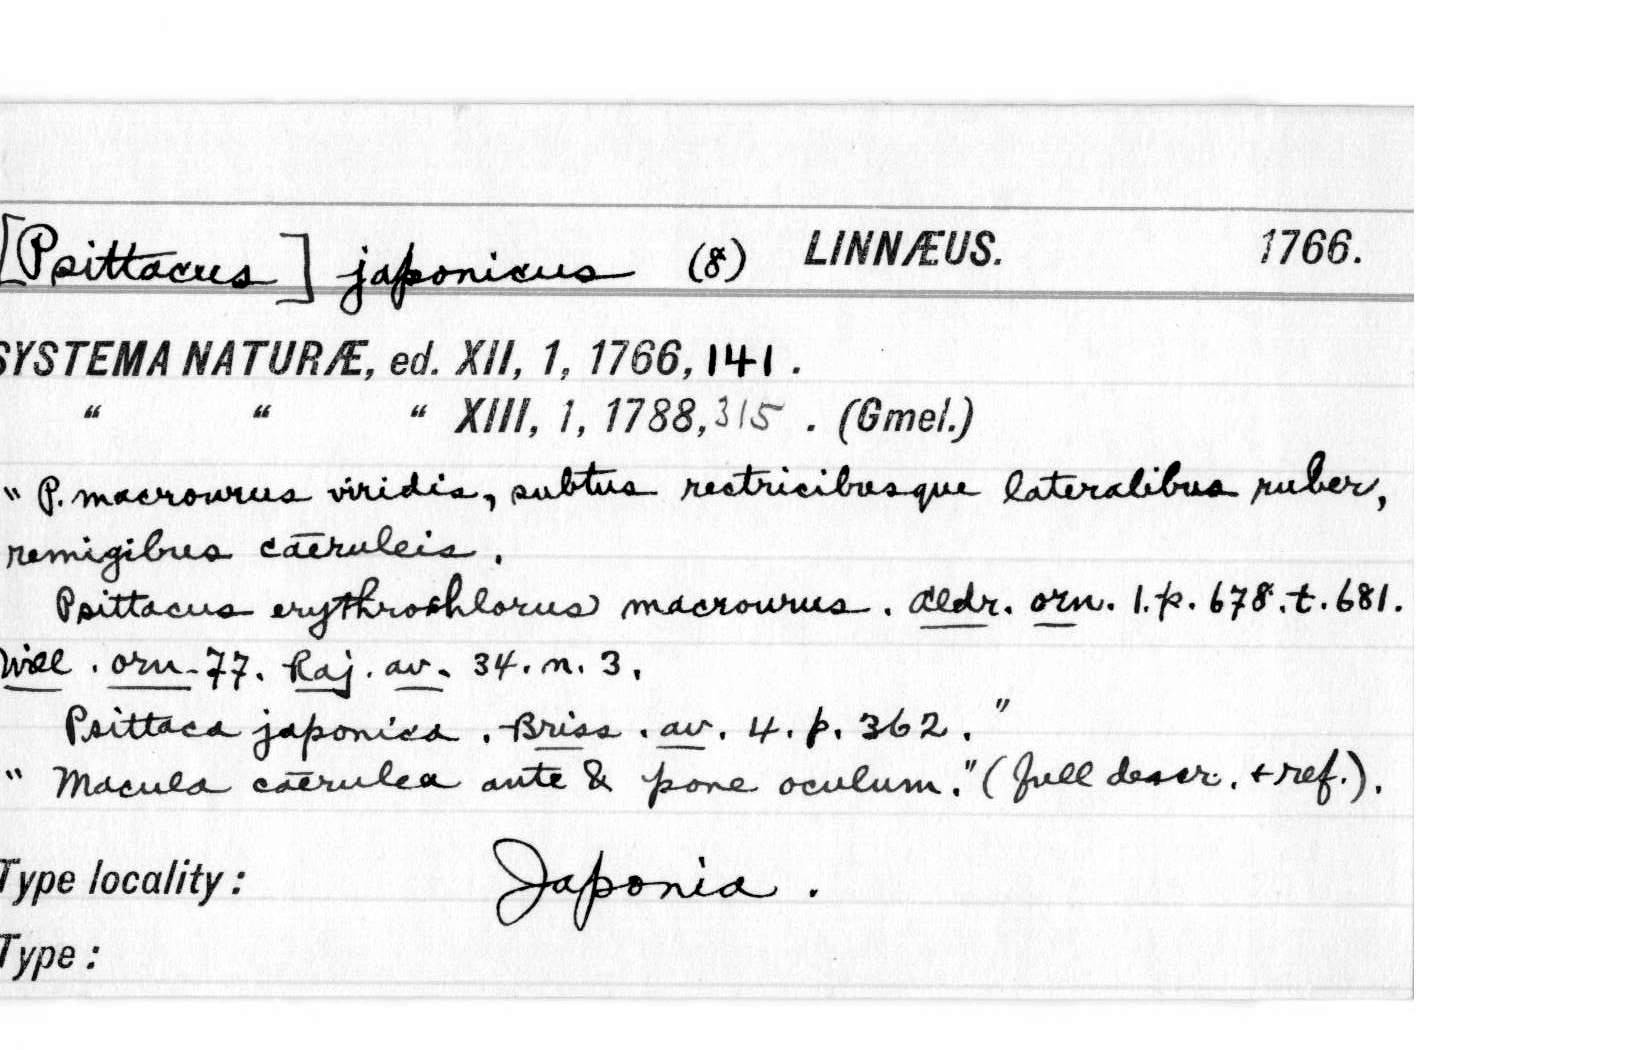 [Psittacus] japonicus (8) LINNÆUS. 1766.
SYSTEMA NATURÆ, ed. XII, 1, 1766, 141.
“ “ “ XIII, 1, 1788, 315. (Gmel.)
" P. macrourus viridis, subtus rectricibusque lateralibus ruber,
remigibus caeruleis.
Psittacus erythrochlorus macrourus. Aldr. orn. 1. p. 678. t. 681.
Will. orn. 77. Raj. av. 34. n. 3.
Psittaca japonica. Briss. av. 4. p. 362."
" Macula caerulea ante & pone oculum." (full descr. + ref.).
Type locality: Japonia.
Type: